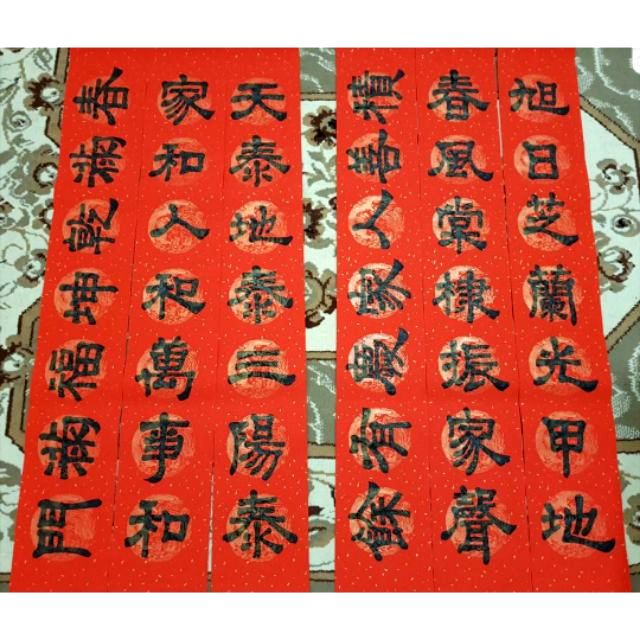 旭日芝蘭光甲地
春風棠棣振家聲
積善人家慶有餘
天泰地泰三陽泰
家和人和萬事和
春滿乾坤福滿門